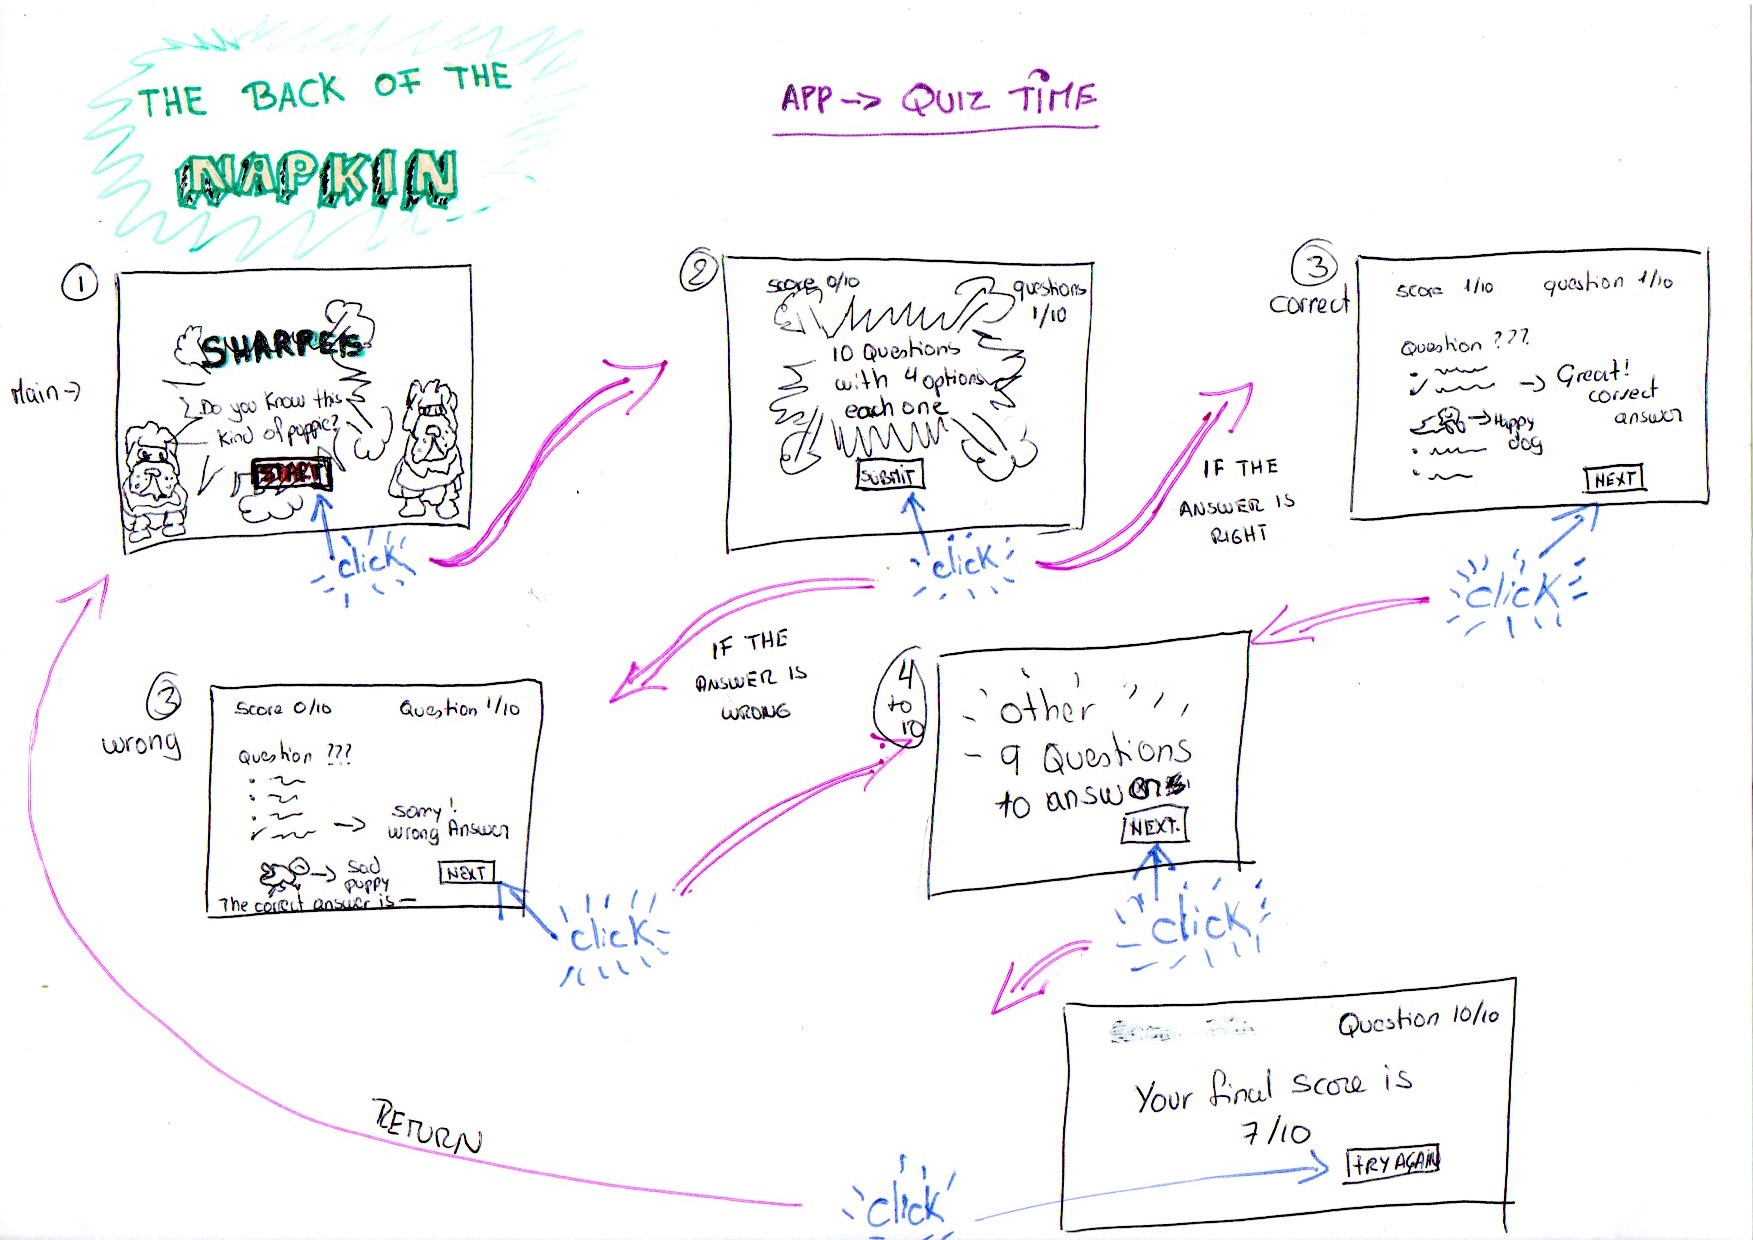 THE BACK OF THE
NAPKIN
APP -> QUIZ TIME
1
Main ->
SHARPEIS
Do you know this
kind of puppie?
START
click
2
score 0/10
questions
1/10
10 Questions
with 4 options
each one
SUBMIT
click
IF THE
ANSWER IS
RIGHT
3
correct
score 1/10
question 1/10
Question ???
-> Great!
correct
answer
-> Happy
dog
NEXT
click
IF THE
ANSWER IS
WRONG
3
wrong
Score 0/10
Question 1/10
Question ???
-> sorry!
wrong Answer
-> sad
puppy
NEXT
The correct answer is —
click
4
to
10
other
9 Questions
to answer
NEXT
click
Question 10/10
Your final score is
7/10
TRY AGAIN
click
RETURN